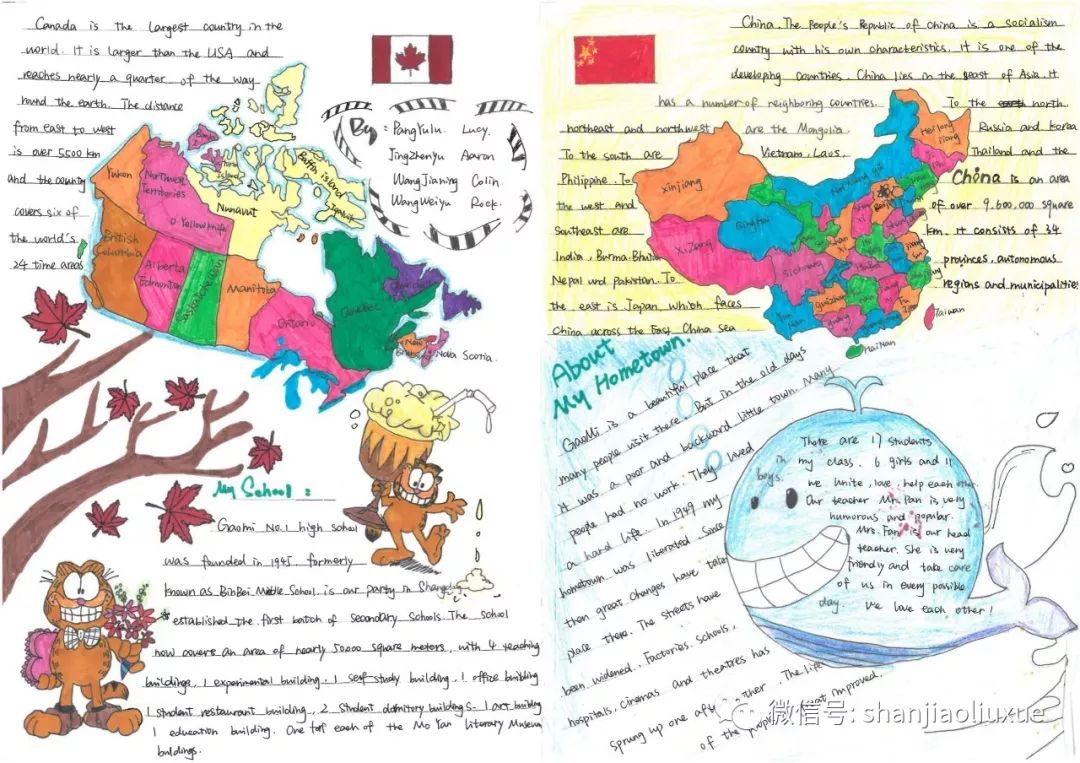 Canada is the largest country in the
world. It is larger than the USA and
reaches nearly a quarter of the way
round the earth. The distance
from east to west
is over 5500 km
and the country
covers six of
the world's
24 time areas
By: PangYulu. Lucy.
JingZhenyu Aaron
WangJianing Colin.
WangWeiyu Rock.
Yukon
Northwest
Territories
Yellowknife
Nunavut
Baffin Island
British
Columbia
Alberta
Edmonton
Saskatchewan
Manitoba
Ontario
Quebec
Churchill
New
Nova Scotia.
My School:
Gaomi No.1 high school
was founded in 1945, formerly
known as BinBei Middle School. is our party in Shangdong
established the first batch of secondary schools. The school
now covers an area of nearly 50000 square meters, with 4 teaching
buildings, 1 experimental building, 1 self-study building, 1 office building
1 student restaurant building, 2 student domitory buildings. 1 art building
1 education building. One for each of the Mo Yan Literary Museum
buildings.
China. The People's Republic of China is a socialism
country with his own characteristics. It is one of the
developing countries. China lies in the east of Asia. It
has a number of neighboring countries. To the north
northeast and northwest are the Mongolia. Russia and Korea
To the south are Vietnam, Laos, Thailand and the
Philippine. To China is an area
the west and of over 9,600,000 square
Southeast are km. It consists of 34
India, Burma. Bhutan provinces, autonomous
Nepal und Pakistan. To regions and municipalities
the east is Japan which faces
China across the East China sea.
Xinjiang
XiZang
QingHai
Sichuang
Guizhou
Hei long
jiang
Taiwan
HaiNan
About
My Hometown.
GaoMi is a beautiful place that
many people visit there. But in the old days
it was a poor and backward little town. Many
people had no work. They lived
a hard life. In 1949 my
hometown was liberated. Since
then great changes have taken
place there. The streets have
been widened. Factories, schools,
hospitals, cinemas and theatres has
sprung up one after ther. The life
of the people eat improved.
There are 17 students
in my class. 6 girls and 11
boys. we unite, love, help each other
Our teacher Mr. Pan is very
humorous and popular.
Mrs. Fan is our head
teacher. She is very
friendly and take care
of us in every possible
day. We love each other!
微信号: shanjiaoliuxue